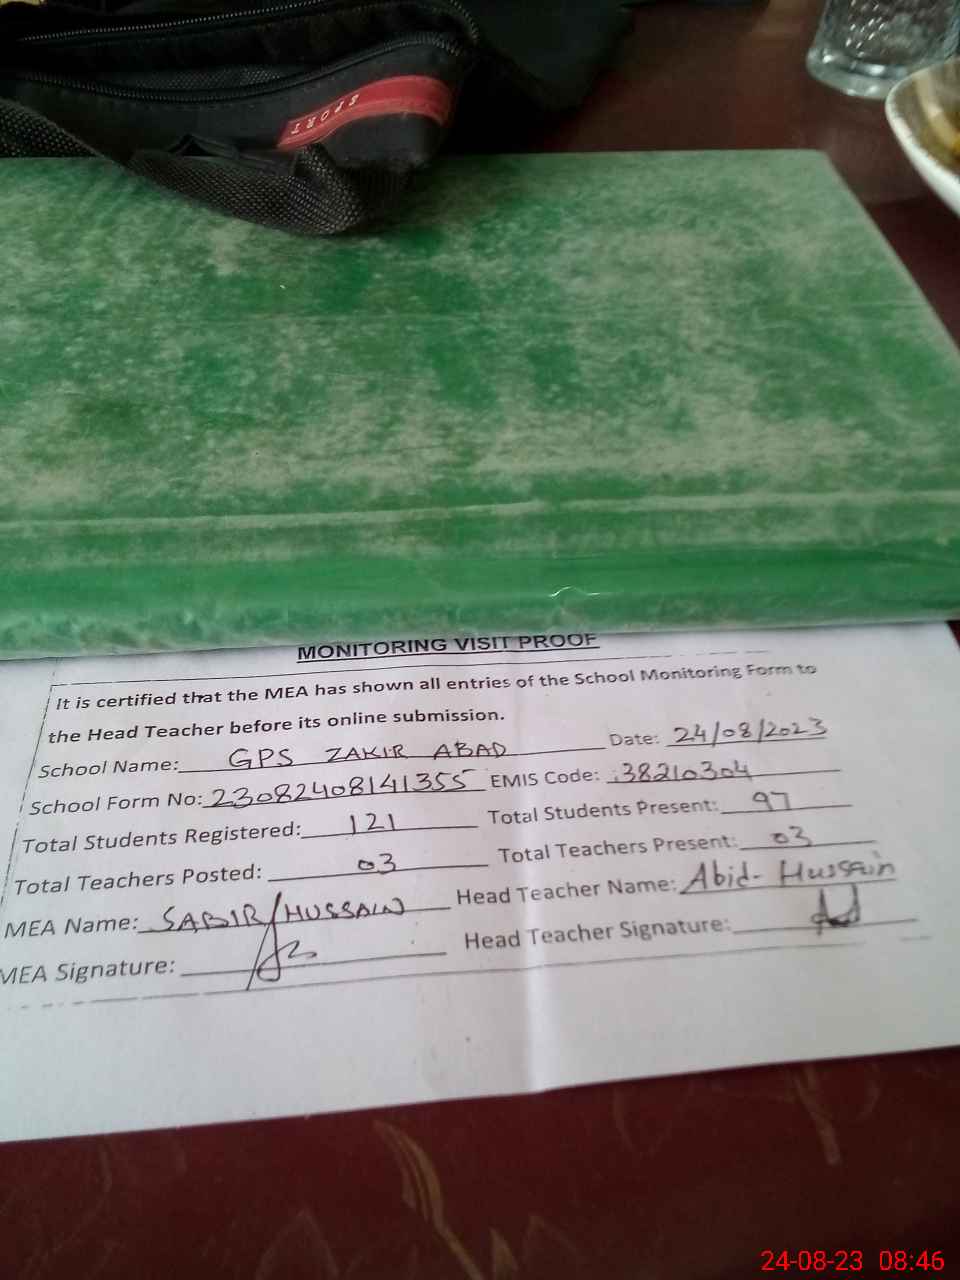 SPORT
MONITORING VISIT PROOF
It is certified that the MEA has shown all entries of the School Monitoring Form to
the Head Teacher before its online submission.
School Name: GPS ZAKIR ABAD Date: 24/08/2023
School Form No: 23082408141355 EMIS Code: 38210304
Total Students Registered: 121 Total Students Present: 97
Total Teachers Posted: 03 Total Teachers Present: 03
MEA Name: SABIR HUSSAIN Head Teacher Name: Abid- Hussain
MEA Signature: Head Teacher Signature:
24-08-23 08:46